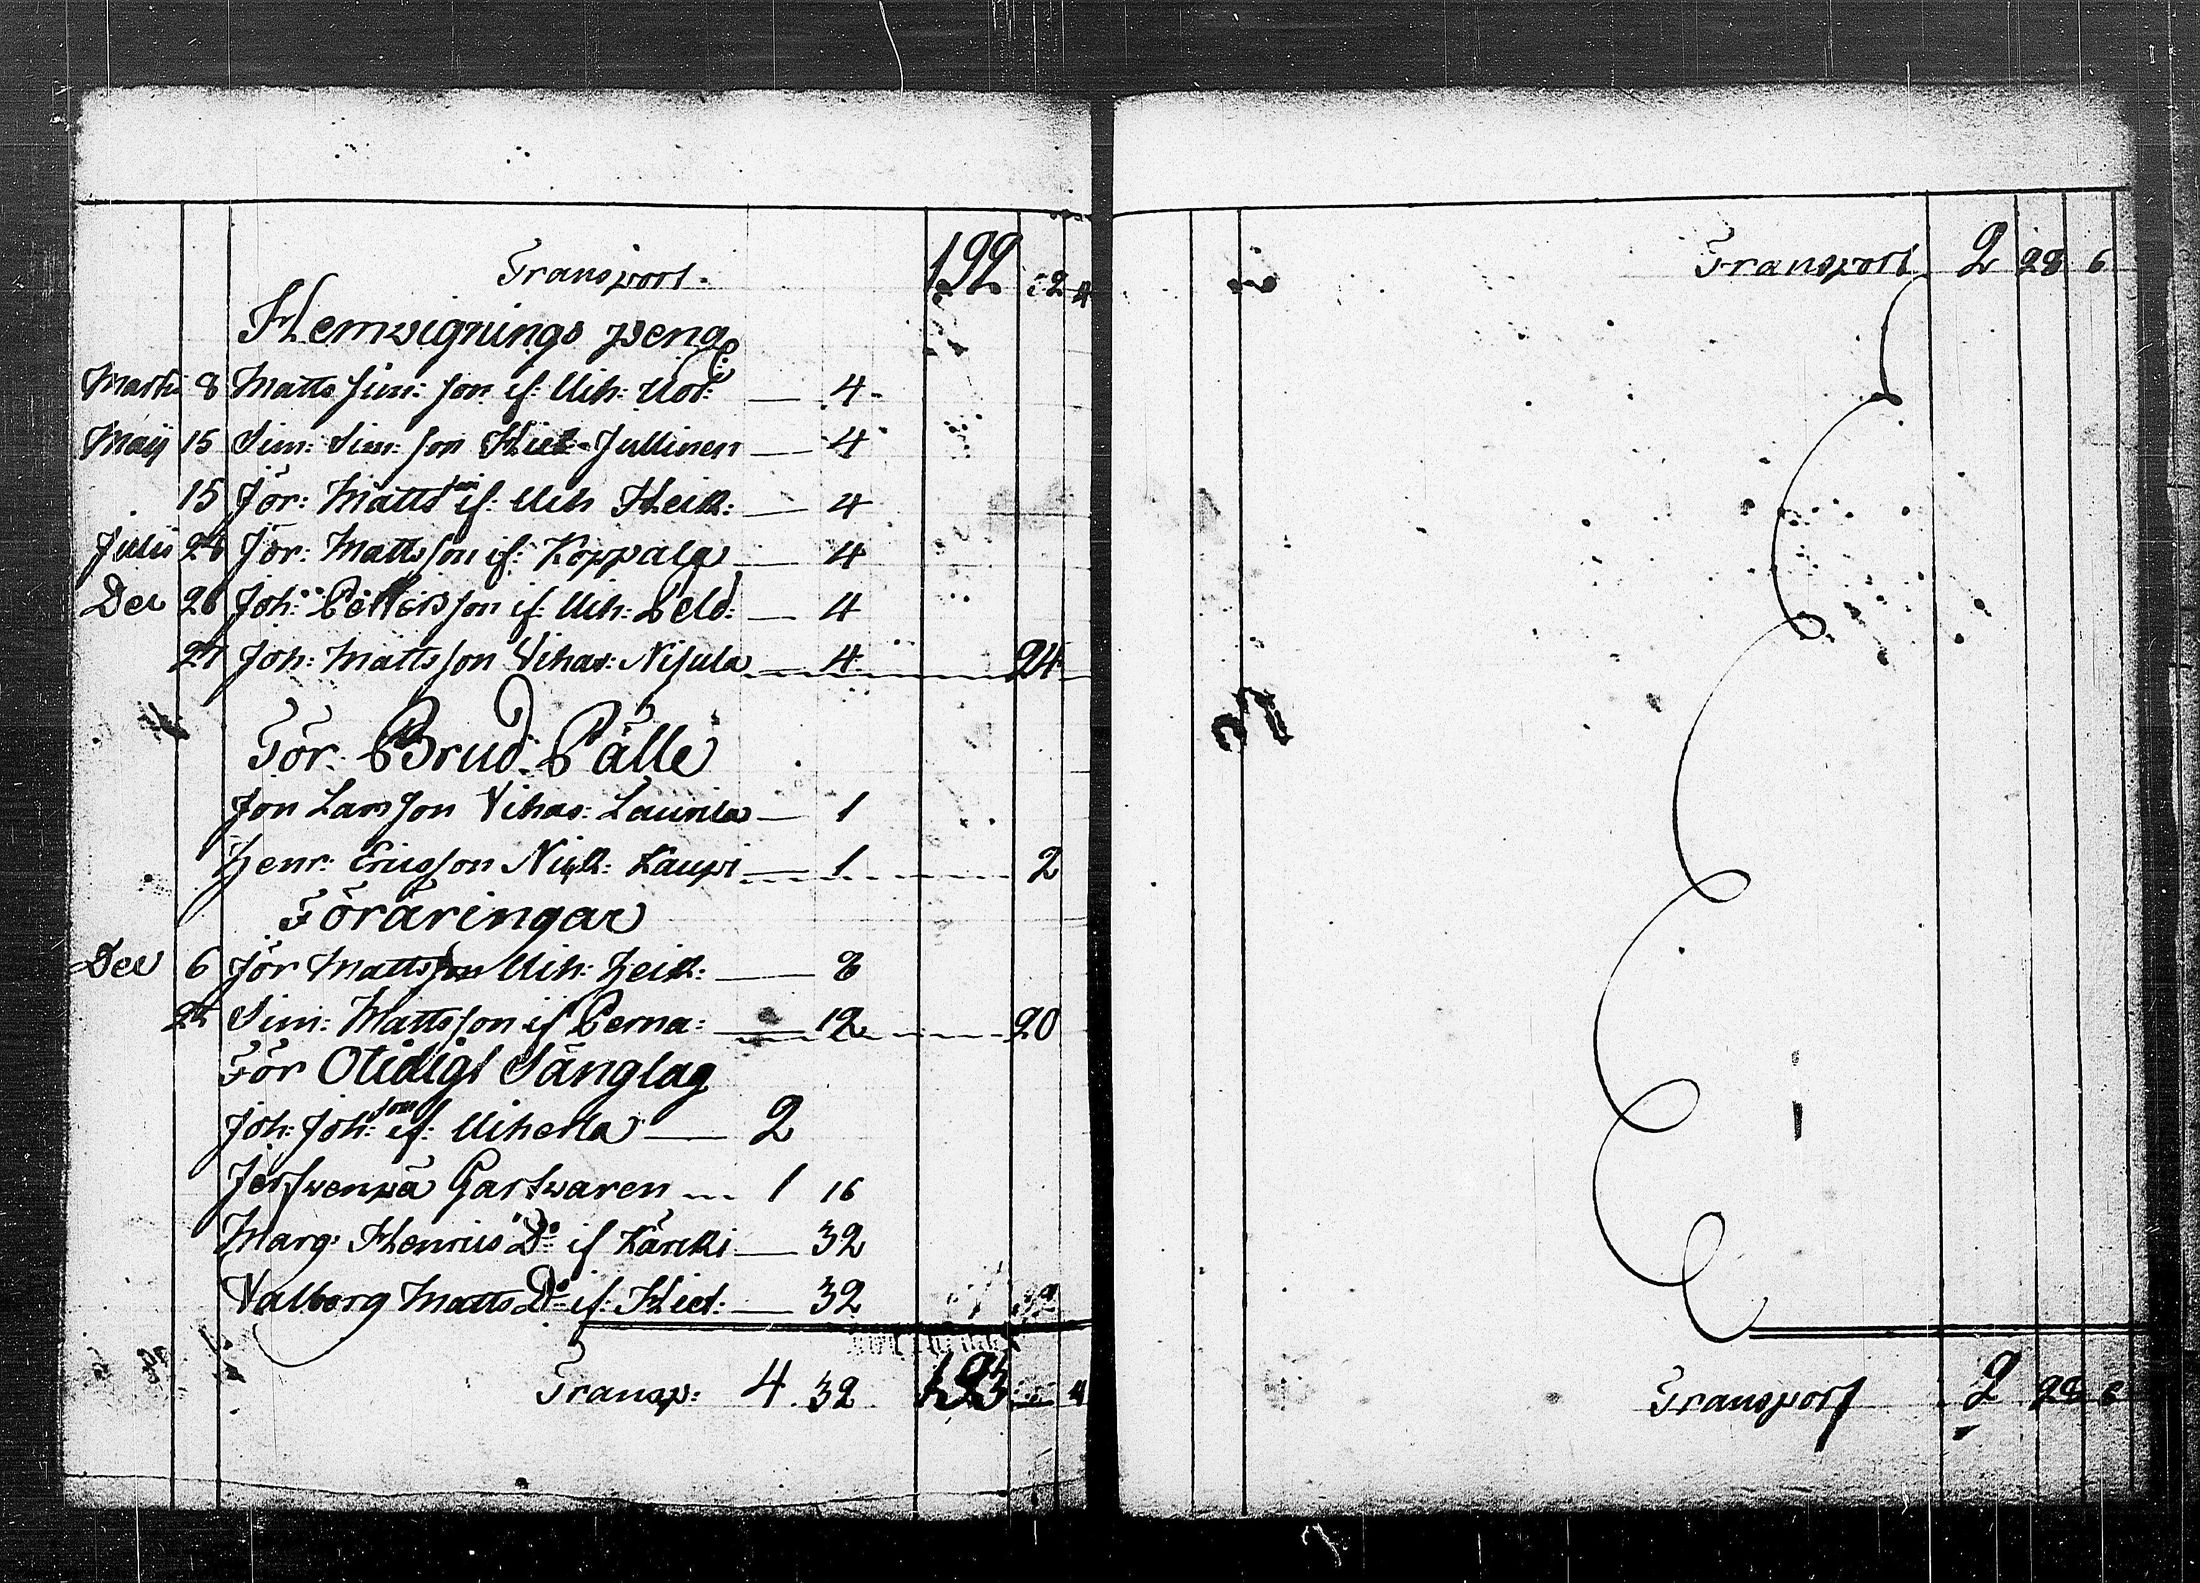 Transport. 192 12 4
Hemvignings peng:
Martii 8 Matts Sim: son if: Uth: Uot: — 4
Maij 15 Sim: Sim: son Hiet Jullinen — 4
15 Jör: Mattsson if: Uth Heik: — 4
Julii 24 Jör: Mattsson if: Koppala — 4
Dec 26 Joh: Pettersson if: Uth: Pelo: — 4
27 Joh: Mattsson Vihas: Nisula — 4 24
För Brud Pälle
Jon Larsson Vihas: Laurila — 1
Henr: Ericsson Kaupi — 1 2
Föräringar
Dec 6 Jör Mattsson Uth: Heik: — 8
Sim: Mattsson if Perna: — 12 20
För Otidigt Sänglag
Joh: Joh: son if: — 2
Gastwaren — 1 16
Marg: Henrics Do if Kärcki — 32
Valborg Matts Do if: Hiet: — 32
Transp: 4 32 193 4
Transport 2 28 6
Transport 2 28 6